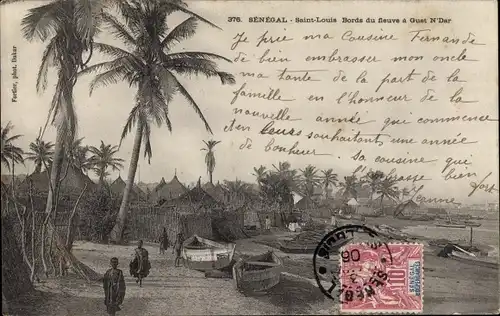 376. SÉNÉGAL - Saint-Louis Bords du fleuve à Guet N'Dar
Fortier, phot. Dakar
Je prie ma Cousine Fernande
de bien embrasser mon oncle
ma tante de la part de la
famille en l'honneur de la
nouvelle année qui commence
et en leurs souhaitant une année
de bonheur. Sa cousine qui
l'embrasse bien fort
10
SÉNÉGAL